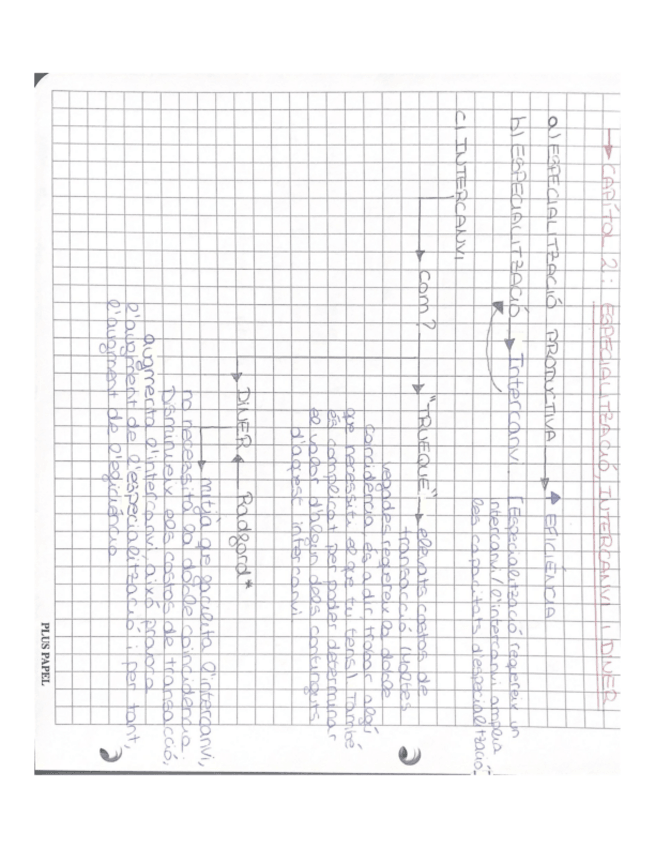 → CAPÍTOL 2: ESPECIALITZACIÓ, INTERCANVI I DINER
a) ESPECIALITZACIÓ PRODUCTIVA → ↑ EFICIÈNCIA
b) ESPECIALITZACIÓ → Intercanvi. [Especialització requereix un
intercanvi / l'intercanvi amplia
les capacitats d'especialització.
c) INTERCANVI
→ Com? → "TRUEQUE" → elevats costos de
transacció (Moltes
vegades requereix la doble
coincidència és a dir, trobar algú
que necessiti el que tu tens). També
és complicat per poder determinar
el valor d'algun dels continguts
d'aquest intercanvi
→ DINER ← Radford*
→ mitjà que facilita l'intercanvi,
no necessita la doble coincidència.
Disminueix els costos de transacció,
augmenta l'intercanvi, això provoca
l'augment de l'especialització i per tant,
l'augment de l'eficiència
PLUS PAPEL